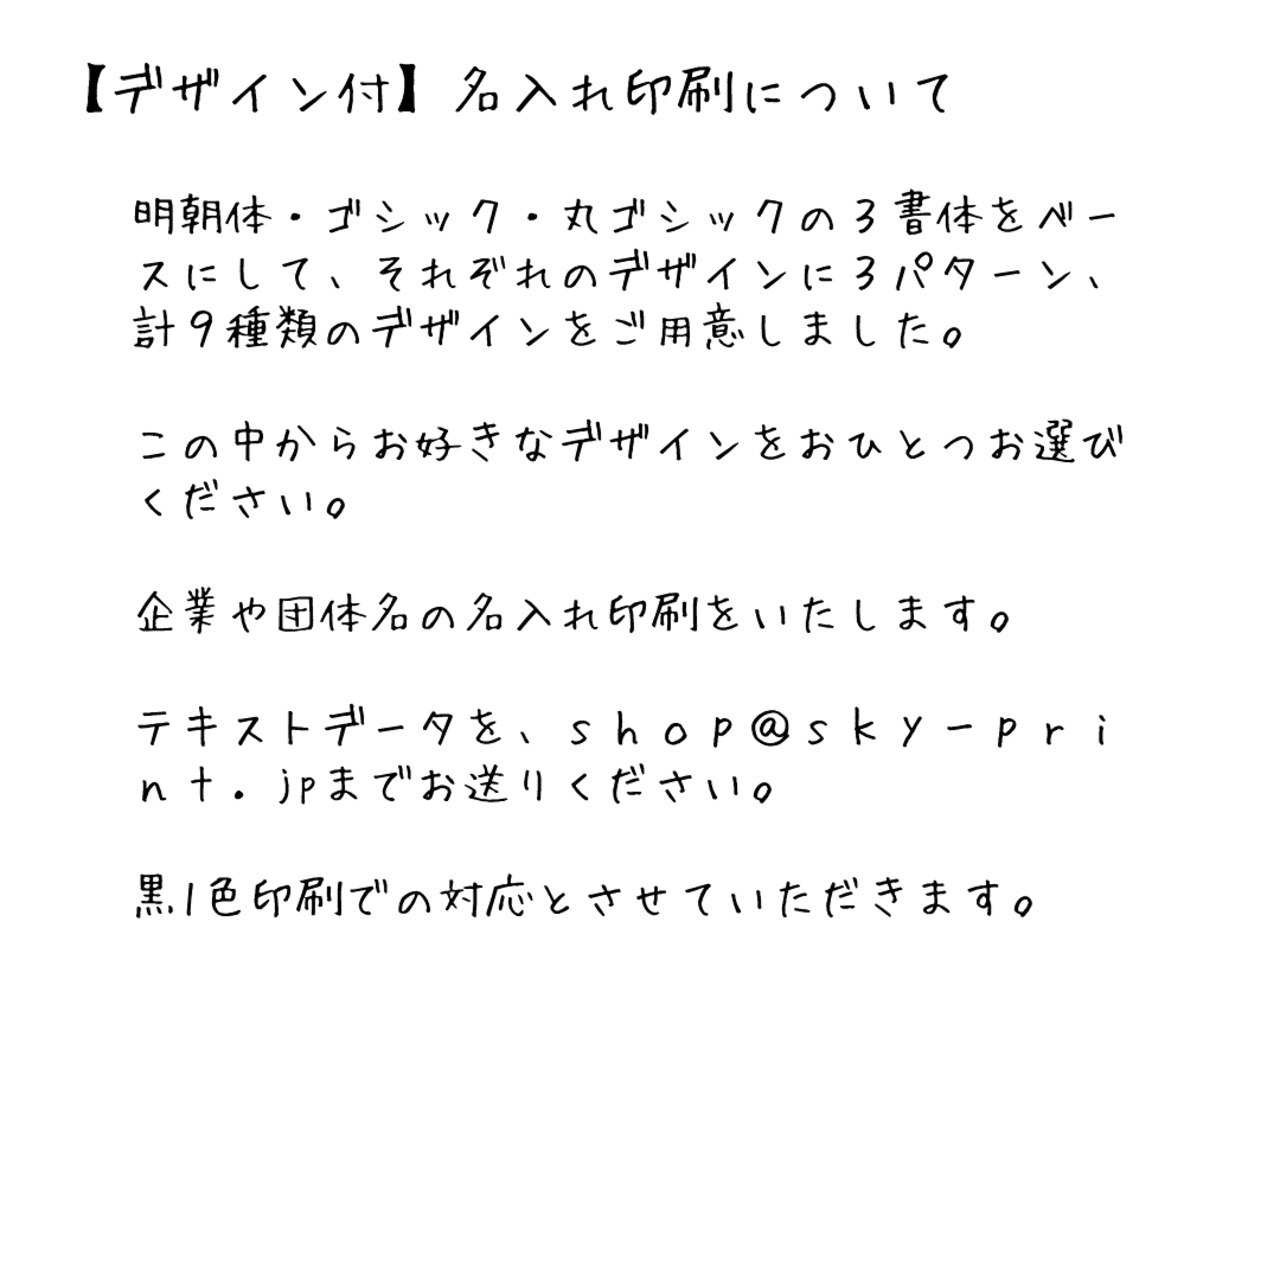 【デザイン付】名入れ印刷について
明朝体・ゴシック・丸ゴシックの3書体をベー
スにして、それぞれのデザインに3パターン、
計9種類のデザインをご用意しました。
この中からお好きなデザインをおひとつお選び
ください。
企業や団体名の名入れ印刷をいたします。
テキストデータを、shop@sky-pri
nt.jpまでお送りください。
黒1色印刷での対応とさせていただきます。